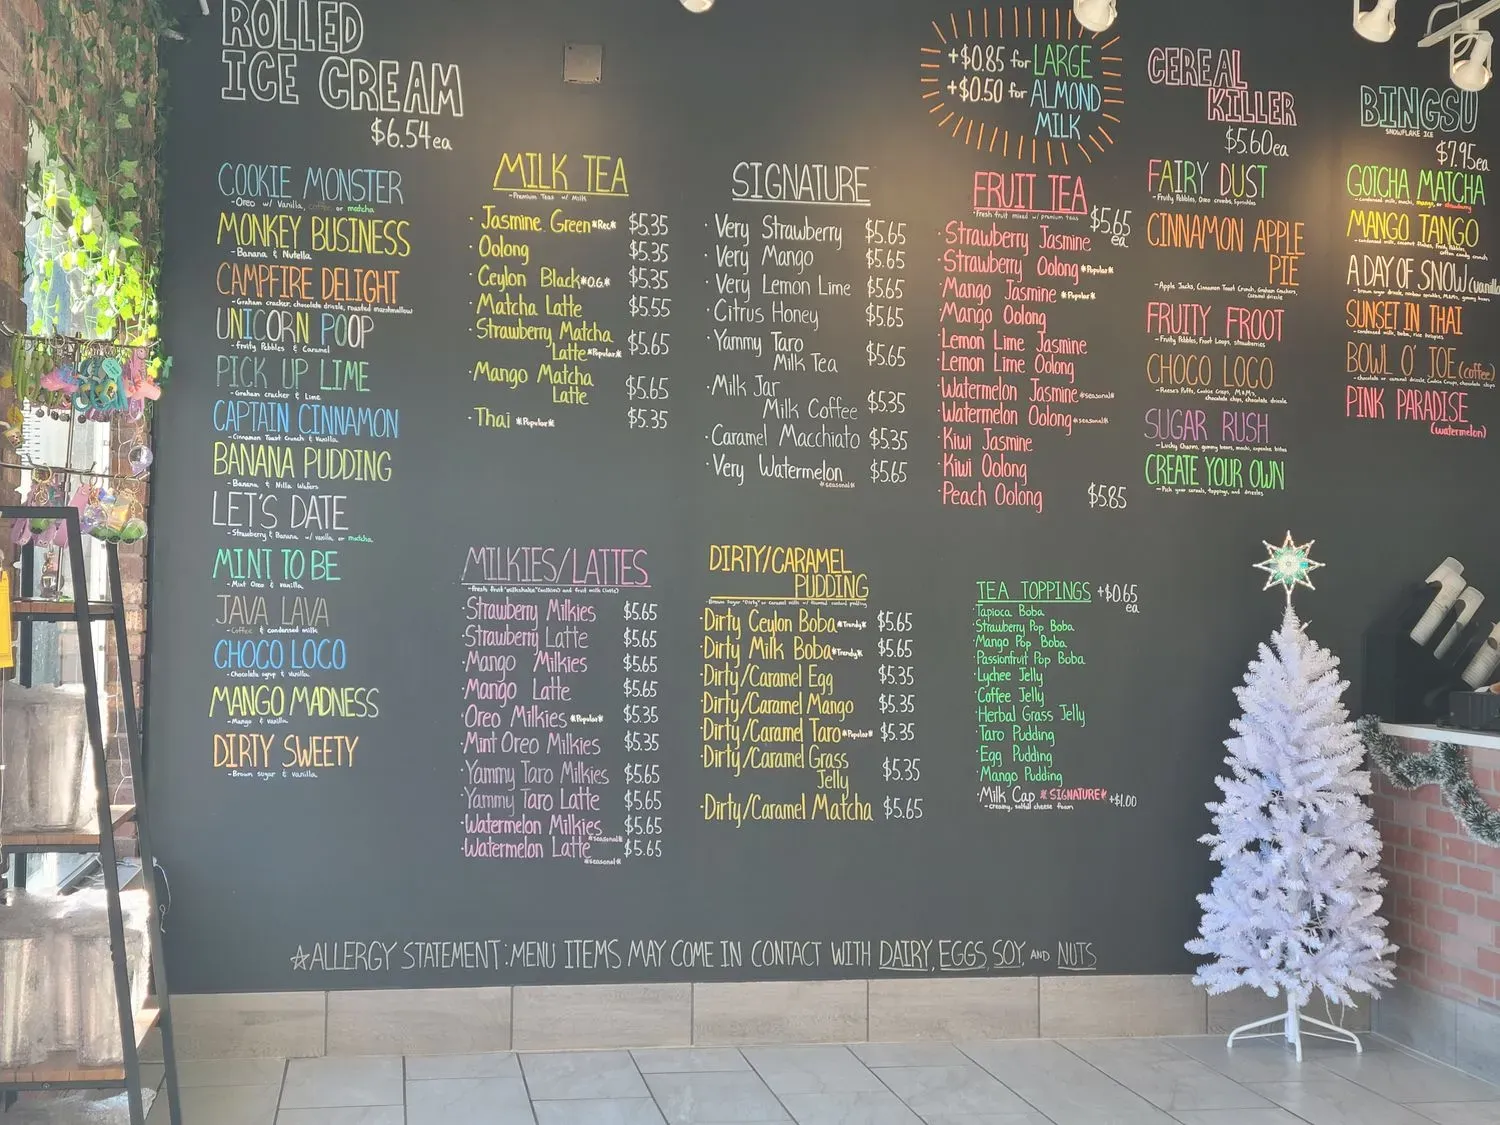 ROLLED
ICE CREAM
$6.54ea
COOKIE MONSTER
-Oreo w/ Vanilla, coffee or matcha
MONKEY BUSINESS
-Banana & Nutella
CAMPFIRE DELIGHT
-Graham cracker, chocolate drizzle, roasted marshmallow
UNICORN POOP
-Fruity Pebbles & Caramel
PICK UP LIME
-Graham cracker & Lime
CAPTAIN CINNAMON
-Cinnamon Toast Crunch & Vanilla
BANANA PUDDING
-Banana & Nilla Wafers
LET'S DATE
-Strawberry & Banana w/ vanilla or matcha
MINT TO BE
-Mint Oreo & vanilla
JAVA LAVA
-Coffee & condensed milk
CHOCO LOCO
-Chocolate syrup & vanilla
MANGO MADNESS
-Mango & vanilla
DIRTY SWEETY
-Brown sugar & vanilla
MILK TEA
-Premium Teas w/ Milk
·Jasmine Green *Rec* $5.35
·Oolong $5.35
·Ceylon Black *O.G.* $5.35
·Matcha Latte $5.55
·Strawberry Matcha
Latte *Popular* $5.65
·Mango Matcha
Latte $5.65
·Thai *Popular* $5.35
MILKIES/LATTES
-Fresh fruit "milkshake" (milkies) and fruit milk (latte)
·Strawberry Milkies $5.65
·Strawberry Latte $5.65
·Mango Milkies $5.65
·Mango Latte $5.65
·Oreo Milkies *Popular* $5.35
·Mint Oreo Milkies $5.35
·Yammy Taro Milkies $5.65
·Yammy Taro Latte $5.65
·Watermelon Milkies *seasonal* $5.65
·Watermelon Latte *seasonal* $5.65
SIGNATURE
·Very Strawberry $5.65
·Very Mango $5.65
·Very Lemon Lime $5.65
·Citrus Honey $5.65
·Yammy Taro
Milk Tea $5.65
·Milk Jar
Milk Coffee $5.35
·Caramel Macchiato $5.35
·Very Watermelon $5.65
*seasonal*
DIRTY/CARAMEL
PUDDING
·Dirty Ceylon Boba *Trendy* $5.65
·Dirty Milk Boba *Trendy* $5.65
·Dirty/Caramel Egg $5.35
·Dirty/Caramel Mango $5.35
·Dirty/Caramel Taro *Popular* $5.35
·Dirty/Caramel Grass
Jelly $5.35
·Dirty/Caramel Matcha $5.65
+$0.85 for LARGE
+$0.50 for ALMOND
MILK
FRUIT TEA
-Fresh fruit mixed w/ premium teas
$5.65
ea
·Strawberry Jasmine
·Strawberry Oolong *Popular*
·Mango Jasmine *Popular*
·Mango Oolong
·Lemon Lime Jasmine
·Lemon Lime Oolong
·Watermelon Jasmine *seasonal*
·Watermelon Oolong *seasonal*
·Kiwi Jasmine
·Kiwi Oolong
·Peach Oolong $5.85
TEA TOPPINGS +$0.65
ea
·Tapioca Boba
·Strawberry Pop Boba
·Mango Pop Boba
·Passionfruit Pop Boba
·Lychee Jelly
·Coffee Jelly
·Herbal Grass Jelly
·Taro Pudding
·Egg Pudding
·Mango Pudding
·Milk Cap *SIGNATURE* +$1.00
-creamy, saltful cheese foam
CEREAL
KILLER
$5.60ea
FAIRY DUST
-Fruity Pebbles, Oreo crumbs, Sprinkles
CINNAMON APPLE
PIE
-Apple Jacks, Cinnamon Toast Crunch, Graham Crackers,
Caramel drizzle
FRUITY FROOT
-Fruity Pebbles, Froot Loops, strawberries
CHOCO LOCO
-Reese's Puffs, Cookie Crisps, M&M's,
chocolate chips, chocolate drizzle
SUGAR RUSH
-Lucky Charms, gummy bears, mochi, cupcake bites
CREATE YOUR OWN
-Pick your cereals, toppings, and drizzles
BINGSU
SNOWFLAKE ICE
$7.95ea
GOTCHA MATCHA
-Condensed milk, mochi, mango, or strawberry
MANGO TANGO
A DAY OF SNOW (vanilla
SUNSET IN THAI
-condensed milk, boba, rice
BOWL O' JOE (coffee)
-chocolate or caramel drizzle, Cookie Crisps, chocolate chips
PINK PARADISE
(watermelon)
*ALLERGY STATEMENT: MENU ITEMS MAY COME IN CONTACT WITH DAIRY, EGGS, SOY, AND NUTS